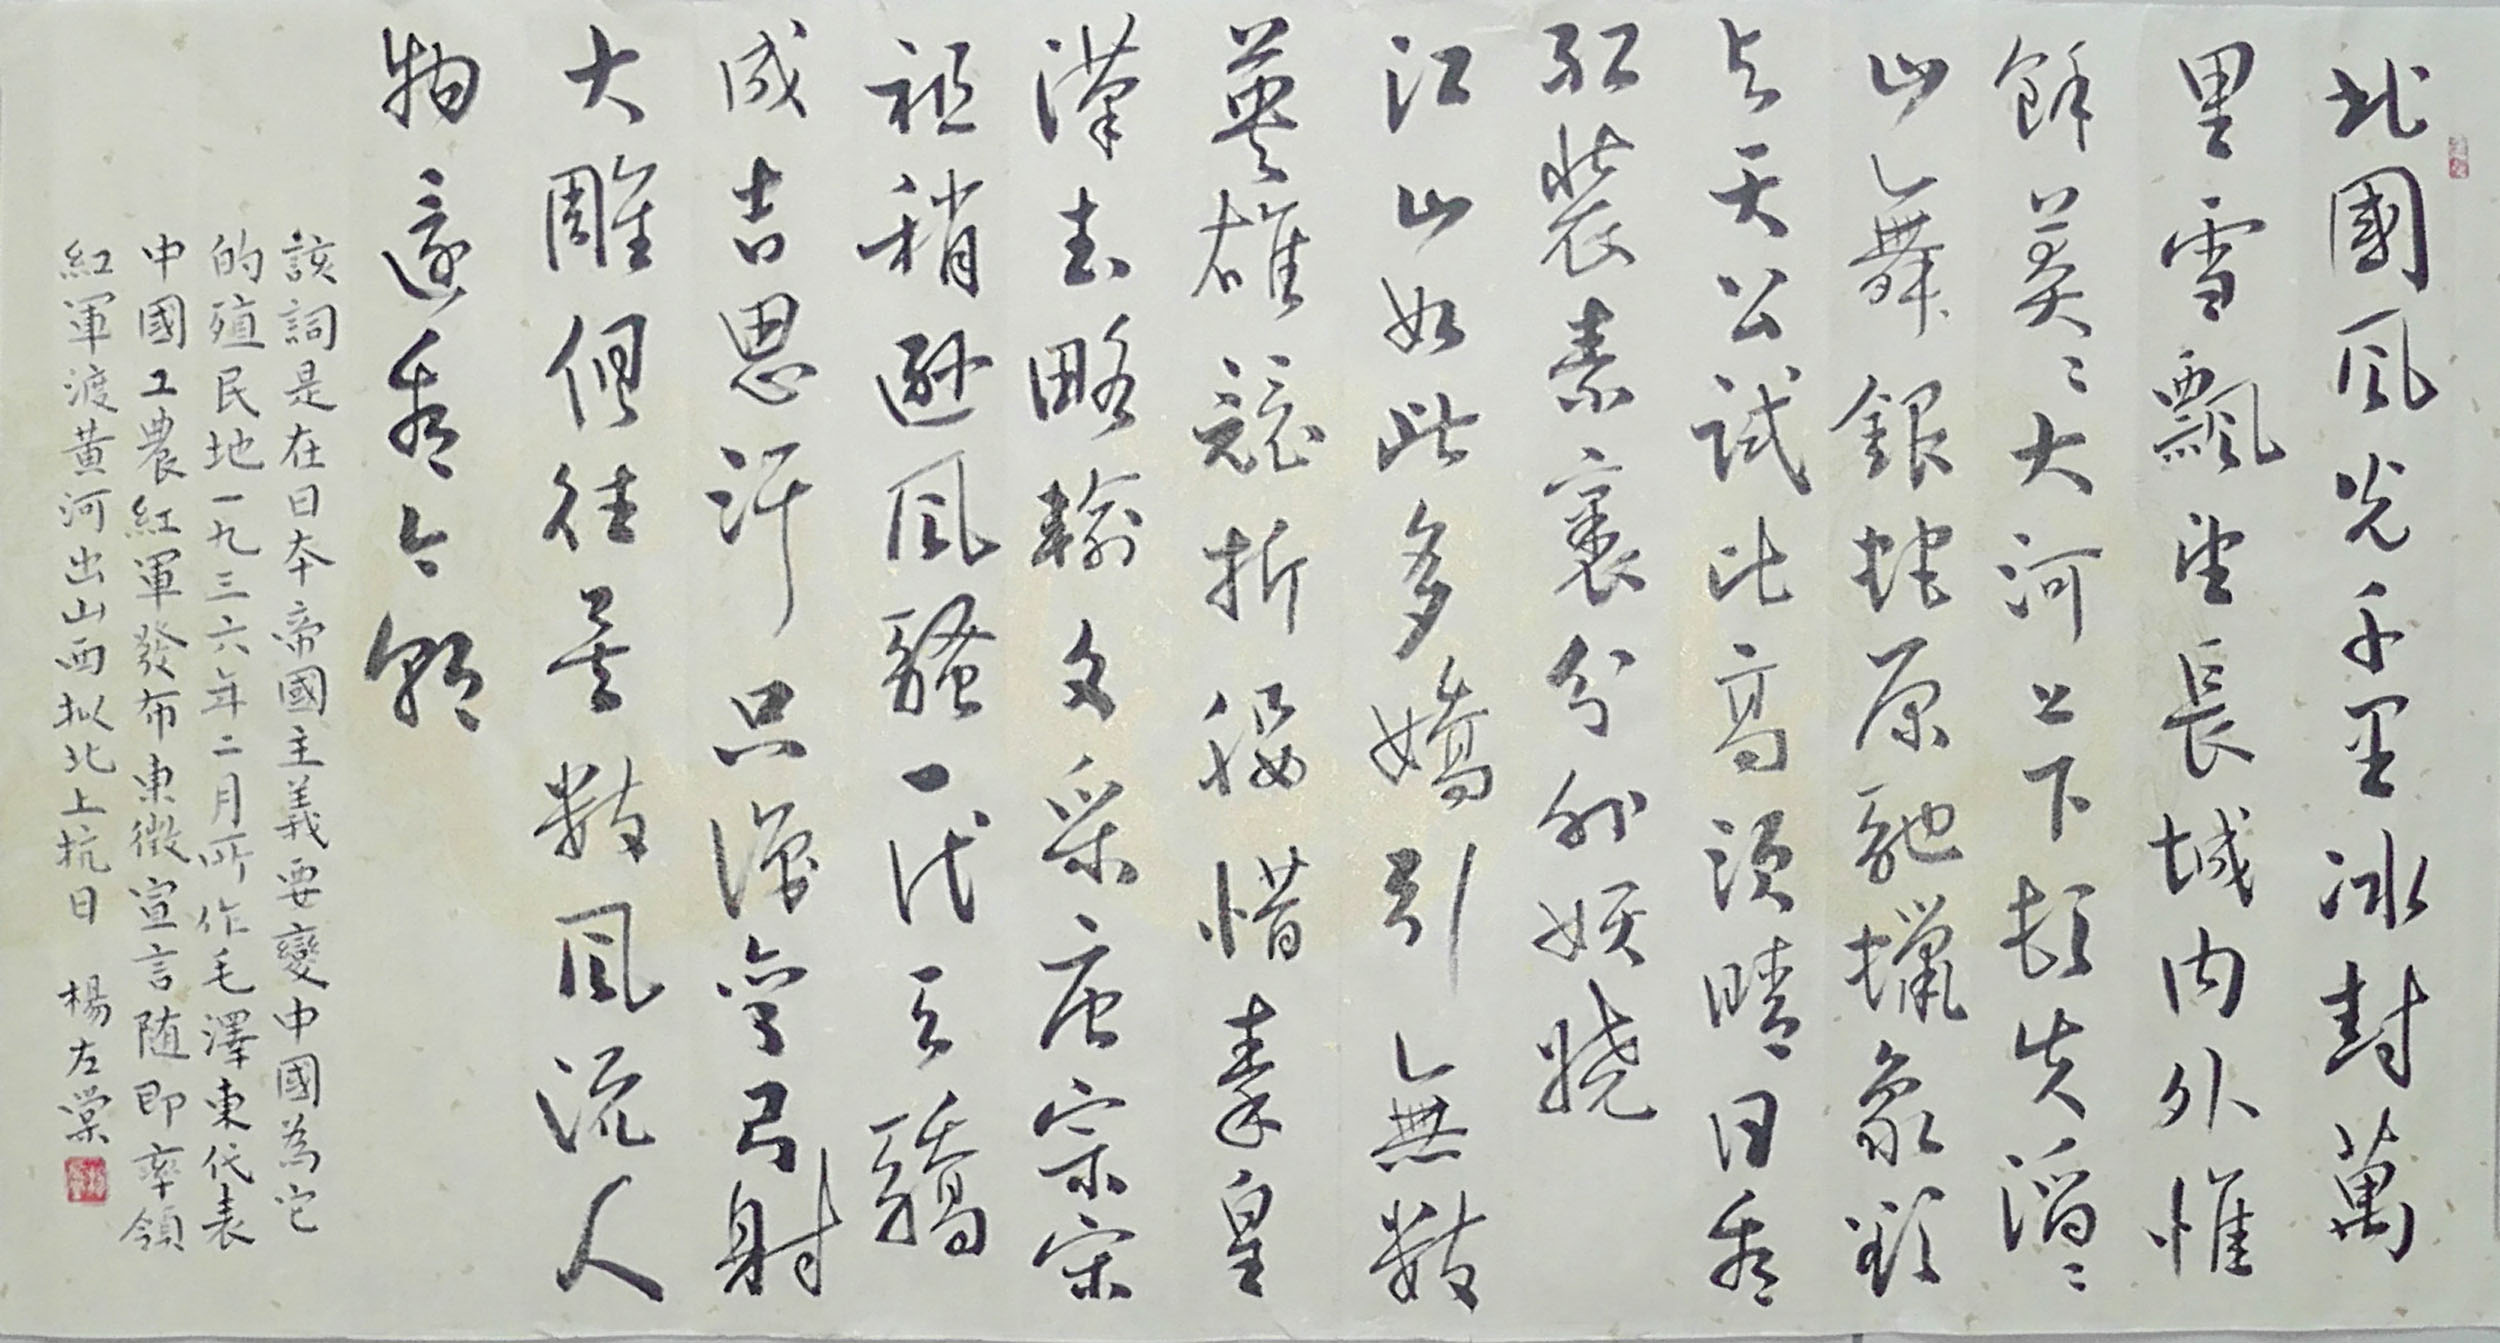 北國風光千里冰封萬
里雪飄望長城內外惟
餘莽〻大河上下頓失滔〻
山乚舞銀蛇原馳蠟象欲
与天公試比高須晴日看
紅裝素裹分外妖嬈
江山如此多嬌引乚無數
英雄競折腰惜秦皇
漢武略輸文采唐宗宋
祖稍遜風騷一代天驕
成吉思汗只識彎弓射
大雕俱往矣數風流人
物還看今朝
該詞是在日本帝國主義要變中國為它
的殖民地一九三六年二月所作毛澤東代表
中國工農紅軍發布東徵宣言随即率領
紅軍渡黄河出山西拟北上抗日 楊左棠